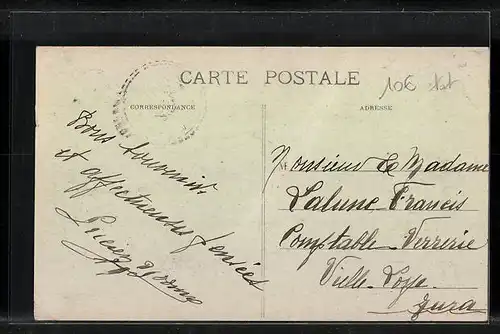 CARTE POSTALE
10€
CORRESPONDANCE
ADRESSE
Bons souvenirs
et affectueuses pensées
Monsieur & Madame
Lalune Francis
Comptable - Verrerie
Vieille-Loye
Jura